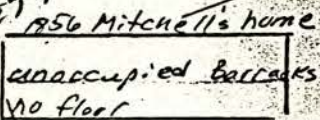 1856 Mitchell's home
unoccupied Barracks
no floor